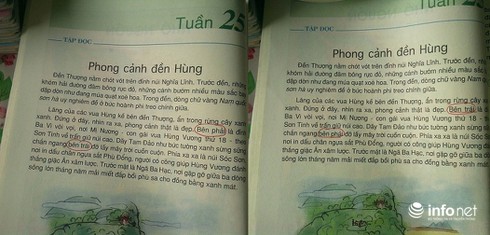 Tuần 25
TẬP ĐỌC
Phong cảnh đền Hùng
Đền Thượng nằm chót vót trên đỉnh núi Nghĩa Lĩnh. Trước đền, những
khóm hải đường đâm bông rực đỏ, những cánh bướm nhiều màu sắc bay
dập dờn như đang múa quạt xoè hoa. Trong đền, dòng chữ vàng Nam quốc
sơn hà uy nghiêm đề ở bức hoành phi treo chính giữa.
Lăng của các vua Hùng kề bên đền Thượng, ẩn trong rừng cây xanh
xanh. Đứng ở đây, nhìn ra xa, phong cảnh thật là đẹp. Bên phải là đỉnh
Ba Vì vòi vọi, nơi Mị Nương - con gái vua Hùng Vương thứ 18 - theo
Sơn Tinh về trấn giữ núi cao. Dãy Tam Đảo như bức tường xanh sừng sững
chắn ngang bên trái đỡ lấy mây trời cuồn cuộn. Phía xa xa là núi Sóc Sơn
nơi in dấu chân ngựa sắt Phù Đổng, người có công giúp Hùng Vương đánh
thắng giặc Ân xâm lược. Trước mặt là Ngã Ba Hạc, nơi gặp gỡ giữa ba dòng
sông lớn tháng năm mải miết đắp bồi phù sa cho đồng bằng xanh mát.
Tuần 25
TẬP ĐỌC
Phong cảnh đền Hùng
Đền Thượng nằm chót vót trên đỉnh núi Nghĩa Lĩnh. Trước đền, những
khóm hải đường đâm bông rực đỏ, những cánh bướm nhiều màu sắc bay
dập dờn như đang múa quạt xoè hoa. Trong đền, dòng chữ vàng Nam quốc
sơn hà uy nghiêm đề ở bức hoành phi treo chính giữa.
Lăng của các vua Hùng kề bên đền Thượng, ẩn trong rừng cây xanh
xanh. Đứng ở đây, nhìn ra xa, phong cảnh thật là đẹp. Bên trái là đỉnh
Ba Vì vòi vọi, nơi Mị Nương - con gái vua Hùng Vương thứ 18 - theo
Sơn Tinh về trấn giữ núi cao. Dãy Tam Đảo như bức tường xanh sừng sững
chắn ngang bên phải đỡ lấy mây trời cuồn cuộn. Phía xa xa là núi Sóc Sơn
nơi in dấu chân ngựa sắt Phù Đổng, người có công giúp Hùng Vương đánh
thắng giặc Ân xâm lược. Trước mặt là Ngã Ba Hạc, nơi gặp gỡ giữa ba dòng
sông lớn tháng năm mải miết đắp bồi phù sa cho đồng bằng xanh mát.
infonet
www.infonet.vn